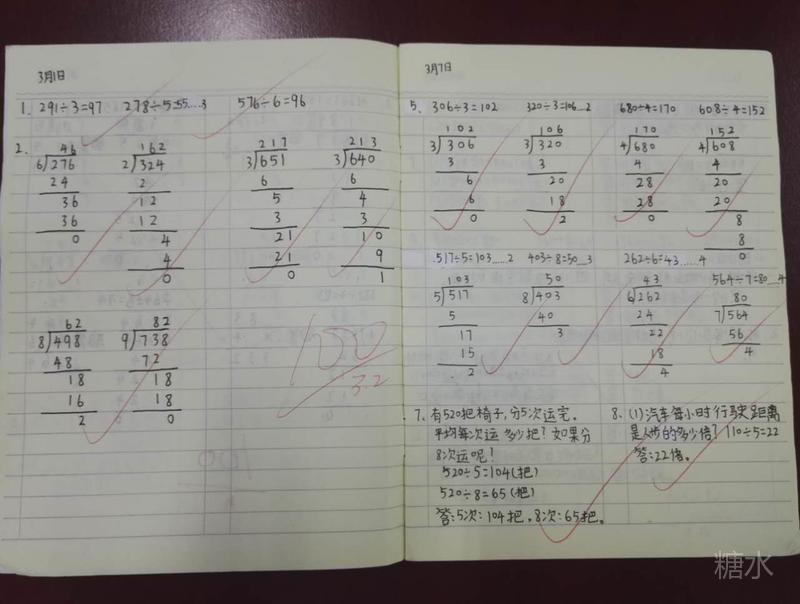 3月1日
1. 291÷3=97 278÷5=55……3 576÷6=96
2.
46
6)276
24
36
36
0
162
2)324
2
12
12
4
4
0
217
3)651
6
5
3
21
21
0
213
3)640
6
4
3
10
9
1
62
8)498
48
18
16
2
82
9)738
72
18
18
0
100
3.2
3月7日
5. 306÷3=102 320÷3=106…2 680÷4=170 608÷4=152
102
3)306
3
6
6
0
106
3)320
3
20
18
2
170
4)680
4
28
28
0
152
4)608
4
20
20
8
8
0
517÷5=103……2 403÷8=50…3 262÷6=43……4 564÷7=80…4
103
5)517
5
17
15
2
50
8)403
40
3
43
6)262
24
22
18
4
80
7)564
56
4
7. 有520把椅子,分5次运完。
平均每次运多少把?如果分
8次运呢!
520÷5=104(把)
520÷8=65(把)
答:5次:104把,8次:65把。
8. (1)汽车每小时行驶距离
是人步的多少倍?110÷5=22
答:22倍。
糖水